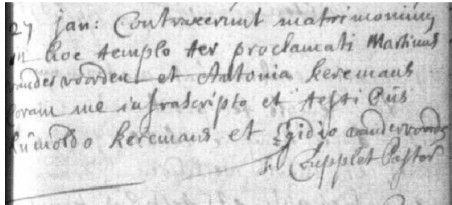 27 jan: Contraxerunt matrimonium
in hoc templo ter proclamati Martinus
vandervoorden et Antonia keremans
Coram me infrascripto et testibus
Rumoldo keremans et Egidio vandervoorde
Supplet Pastor